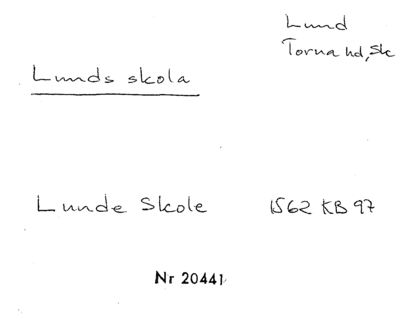 Lund
Torna hd, Sk
Lunds skola
Lunde Skole 1562 KB 97
Nr 20441